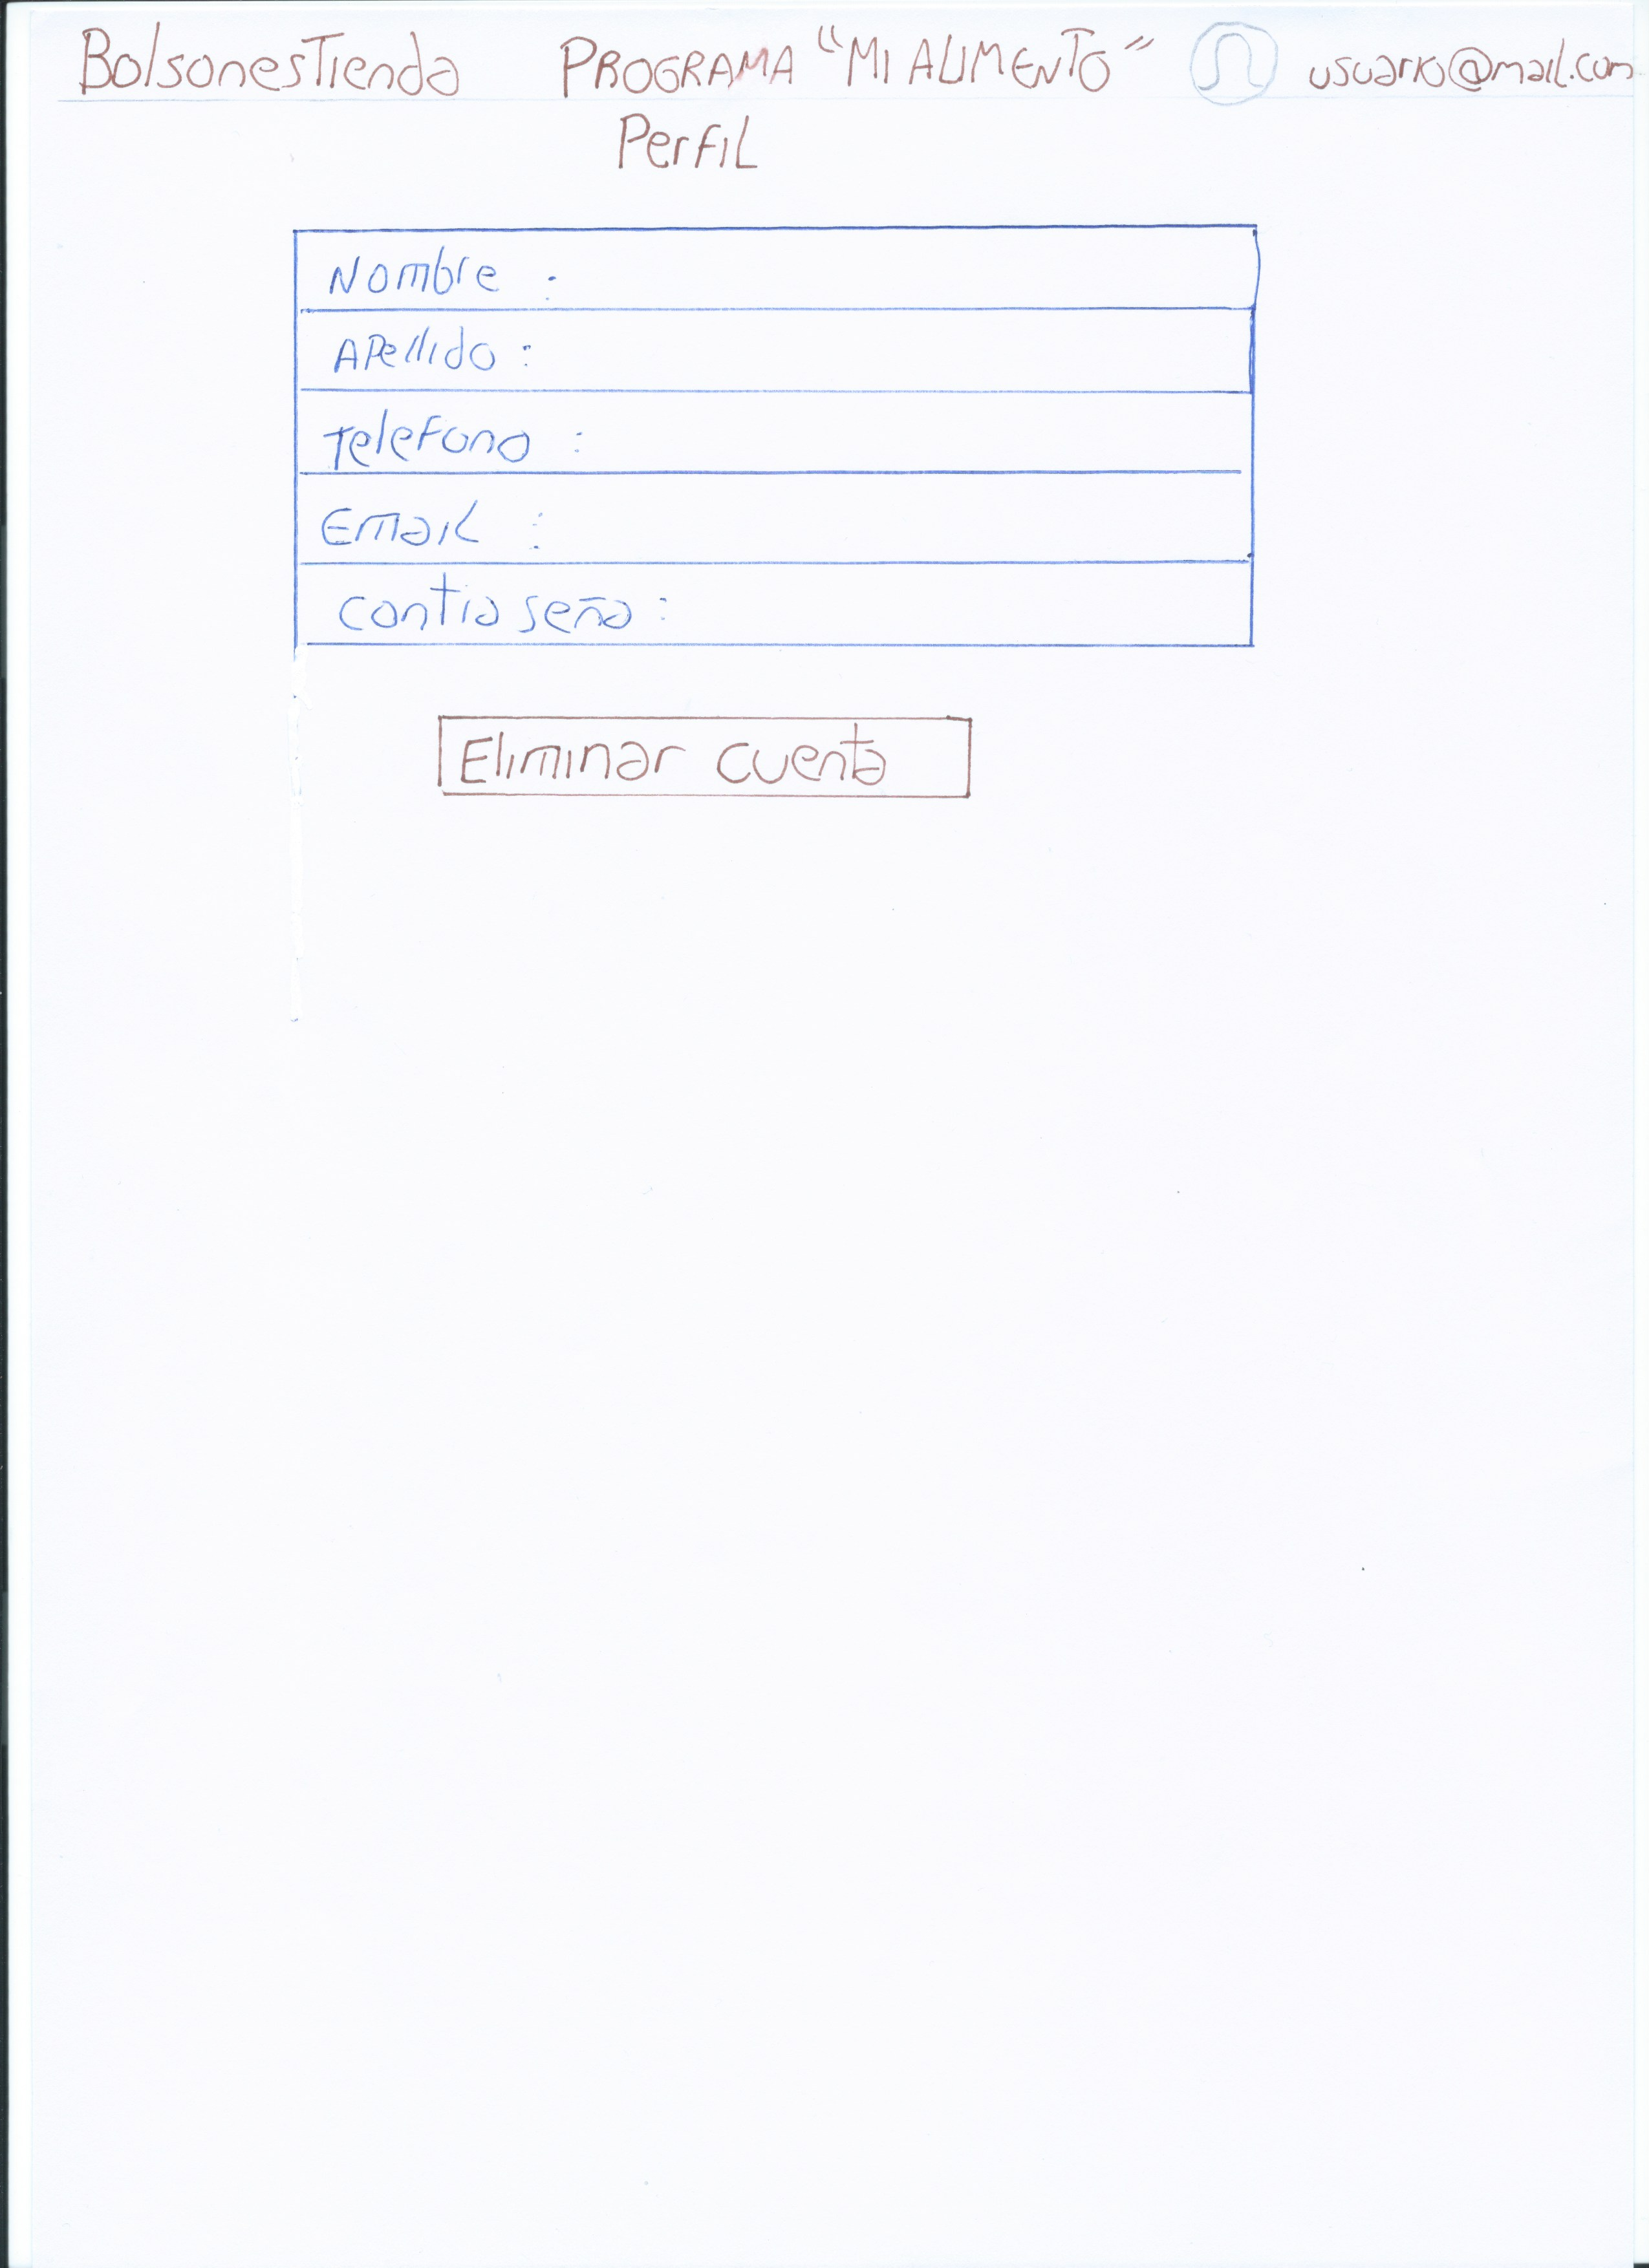 BolsonesTienda PROGRAMA "MI ALIMENTO" usuario@mail.com
Perfil
Nombre :
Apellido :
Telefono :
Email :
contraseña :
Eliminar cuenta